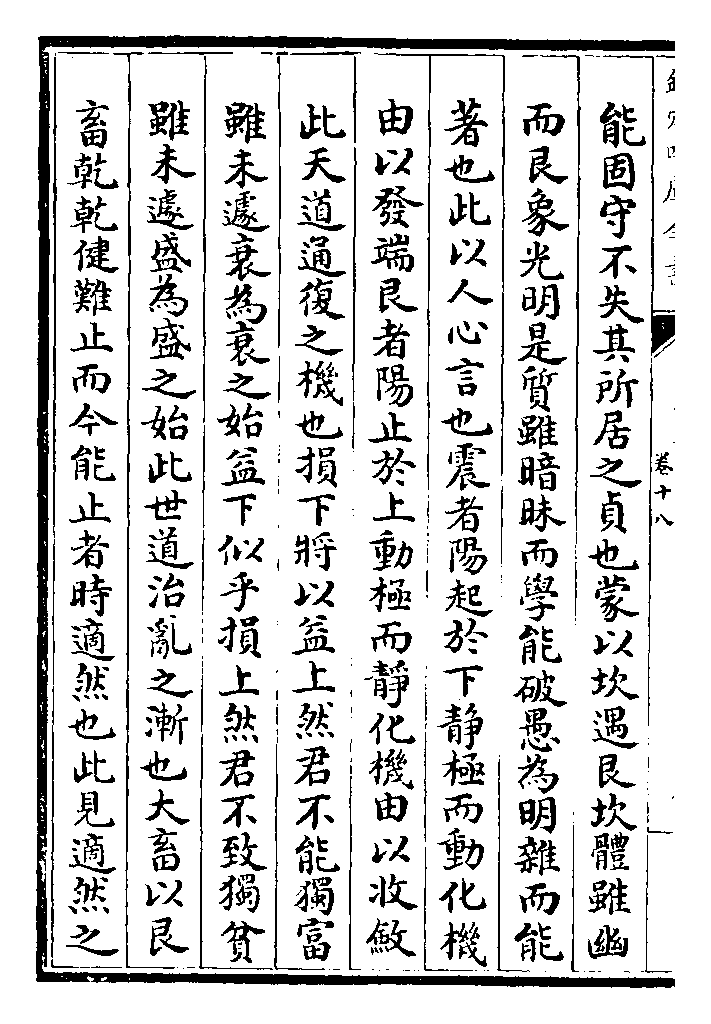 欽定四庫全書
卷十八
能固守不失其所居之貞也蒙以坎遇艮坎體雖幽
而艮象光明是質雖暗昧而學能破愚為明雜而能
著也此以人心言也震者陽起於下靜極而動化機
由以發端艮者陽止於上動極而靜化機由以收斂
此天道通復之機也損下將以益上然君不能獨富
雖未遽衰為衰之始益下似乎損上然君不致獨貧
雖未遽盛為盛之始此世道治亂之漸也大畜以艮
畜乾乾健難止而今能止者時適然也此見適然之